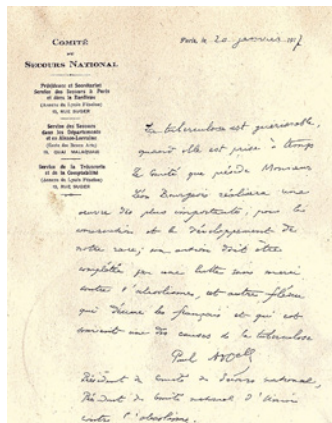 COMITÉ
DU
SECOURS NATIONAL
Présidence et Secrétariat
Service des Secours à Paris
et dans la Banlieue
(Annexe du Lycée Fénelon)
13, RUE SUGER
Service des Secours
dans les Départements
et en Alsace-Lorraine
(École des Beaux Arts)
QUAI MALAQUAIS
Service de la Trésorerie
et de la Comptabilité
(Annexe du Lycée Fénelon)
13, RUE SUGER
Paris, le 20 janvier 1917
La tuberculose est guérissable,
quand elle est prise à temps
Le Comité que préside Monsieur
Léon Bourgeois réalisera une
œuvre des plus importante, pour la
conservation et le développement de
notre race; son action doit être
complétée par une lutte sans merci
contre l'alcoolisme, cet autre fléau
qui décime les français et qui est
souvent une des causes de la tuberculose
Paul Appell
Président du Comité du Secours national,
Président du Comité national d'Union
contre l'alcoolisme.